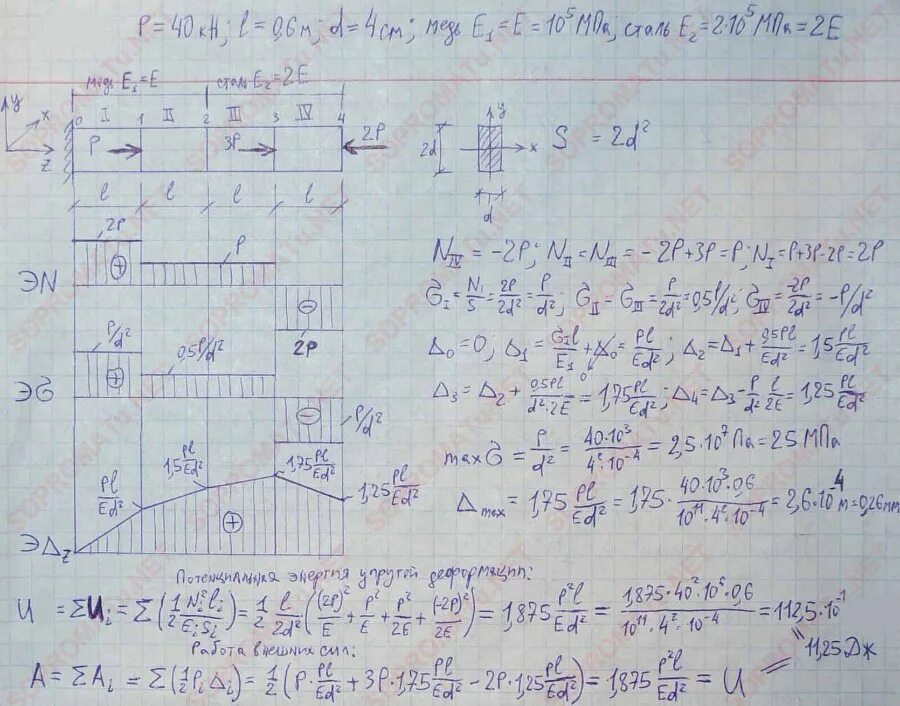 P = 40 кН; l = 0,6 м; d = 4 см; медь E₁ = E = 10⁵ МПа; сталь E₂ = 2·10⁵ МПа = 2E
медь E₁=E сталь E₂=2E
y x z
0 I 1 II 2 III 3 IV 4
P 3P 2P
l l l l
2d d y x
S = 2d²
ЭN
2P + P − 2P
N_IV = -2P; N_II = N_III = -2P+3P = P; N_I = P+3P-2P = 2P
б_I = N₁/S = 2P/2d² = P/d²; б_II = б_III = P/2d² = 0,5P/d²; б_IV = -2P/2d² = -P/d²
Эб
P/d² + 0,5P/d² − P/d²
Δ₀ = 0; Δ₁ = б_I l/E₁ + Δ₀ = Pl/Ed²; Δ₂ = Δ₁ + 0,5Pl/Ed² = 1,5 Pl/Ed²
Δ₃ = Δ₂ + 0,5Pl/d²·2E = 1,75 Pl/Ed²; Δ₄ = Δ₃ - P/d² · l/2E = 1,25 Pl/Ed²
max б = P/d² = 40·10³/4²·10⁻⁴ = 2,5·10⁷ Па = 25 МПа
Δmax = 1,75 Pl/Ed² = 1,75· 40·10³·0,6/10¹¹·4²·10⁻⁴ = 2,6·10⁻⁴ м = 0,26 мм
ЭΔz
Pl/Ed² 1,5 Pl/Ed² 1,75 Pl/Ed² 1,25 Pl/Ed² +
Потенциальная энергия упругой деформации:
U = ΣUᵢ = Σ(1/2 Nᵢ²lᵢ/EᵢSᵢ) = 1/2 l/2d² ((2P)²/E + P²/E + P²/2E + (-2P)²/2E) = 1,875 P²l/Ed² = 1,875·40²·10⁶·0,6/10¹¹·4²·10⁻⁴ = 112,5·10⁻¹
= 11,25 Дж
Работа внешних сил:
A = ΣAᵢ = Σ(1/2 Pᵢ Δᵢ) = 1/2 (P· Pl/Ed² + 3P·1,75 Pl/Ed² - 2P·1,25 Pl/Ed²) = 1,875 P²l/Ed² = U
SOPROMATu.NET